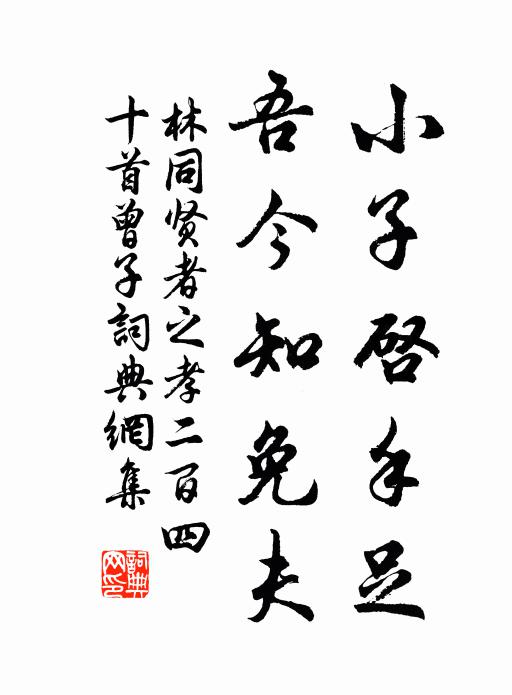 小子啓手足
吾今知免夫
林同贤者之孝二百四
十首曾子詞典網集
詞典
网印